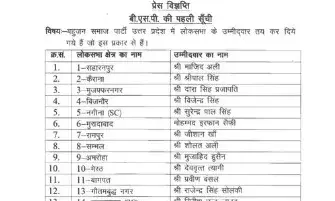 प्रेस विज्ञप्ति
बी.एस.पी. की पहली सूँची
विषयः-बहुजन समाज पार्टी उत्तर प्रदेश मे लोकसभा के उम्मीदवार तय कर दिये
गये हैं जो इस प्रकार से हैं।
क्र.स. लोकसभा क्षेत्र का नाम उम्मीदवार का नाम
1. 1-सहारनपुर श्री माजिद अली
2. 2-कैराना श्री श्रीपाल सिंह
3. 3-मुजफ्फरनगर श्री दारा सिंह प्रजापति
4. 4-बिजनौर श्री विजेन्द्र सिंह
5. 5-नगीना (SC) श्री सुरेन्द्र पाल सिंह
6. 6-मुरादाबाद मोहम्मद इरफान सैफी
7. 7-रामपुर श्री जीशान खाँ
8. 8-सम्भल श्री शौलत अली
9. 9-अमरोहा श्री मुजाहिद हुसैन
10. 10-मेरठ श्री देवव्रत त्यागी
11. 11-बागपत श्री प्रवीण बंसल
12. 13-गौतमबुद्ध नगर श्री राजेन्द्र सिंह सोलंकी